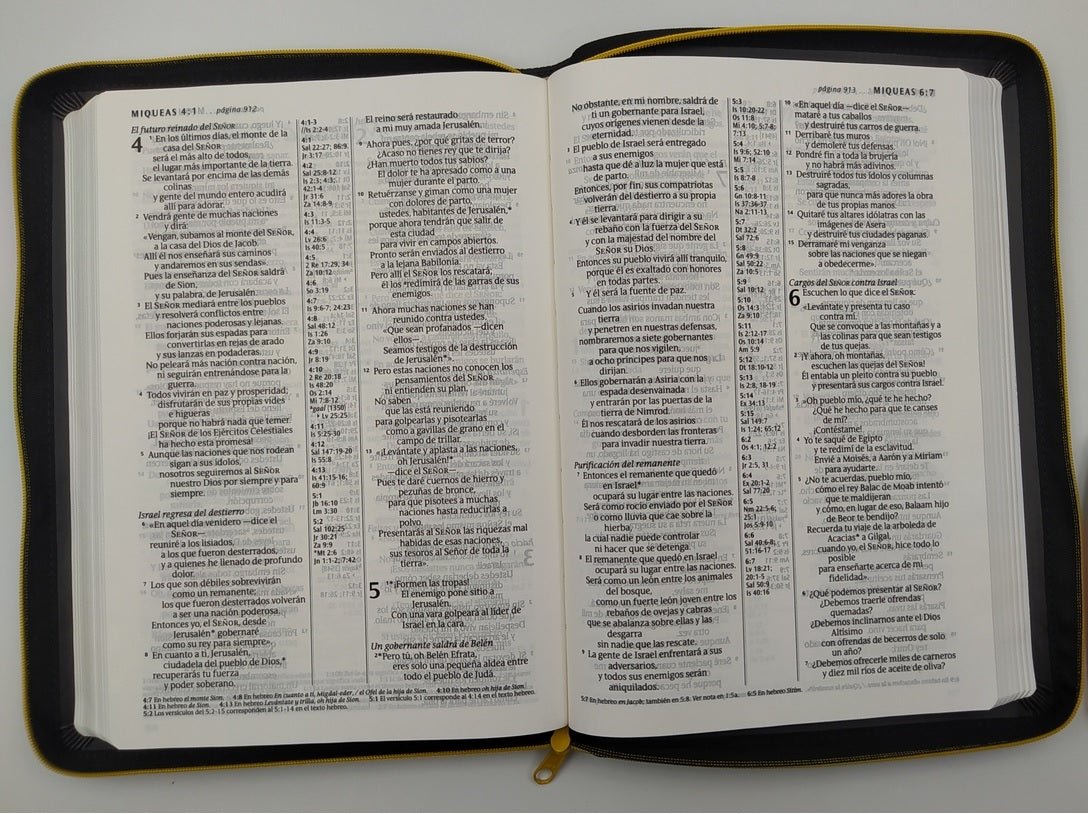 MIQUEAS 4:1 . . . página 912
El futuro reinado del SEÑOR
4 1 En los últimos días, el monte de la
casa del SEÑOR
será el más alto de todos,
el lugar más importante de la tierra.
Se levantará por encima de las demás
colinas
y gente del mundo entero acudirá
allí para adorar.
2 Vendrá gente de muchas naciones
y dirá:
«Vengan, subamos al monte del SEÑOR,
a la casa del Dios de Jacob.
Allí él nos enseñará sus caminos
y andaremos en sus sendas».
Pues la enseñanza del SEÑOR saldrá
de Sion,
y su palabra, de Jerusalén.
3 El SEÑOR mediará entre los pueblos
y resolverá conflictos entre
naciones poderosas y lejanas.
Ellos forjarán sus espadas para
convertirlas en rejas de arado
y sus lanzas en podaderas.
No peleará más nación contra nación,
ni seguirán entrenándose para la
guerra.
4 Todos vivirán en paz y prosperidad;
disfrutarán de sus propias vides
e higueras
porque no habrá nada que temer.
¡El SEÑOR de los Ejércitos Celestiales
ha hecho esta promesa!
5 Aunque las naciones que nos rodean
sigan a sus ídolos,
nosotros seguiremos al SEÑOR
nuestro Dios por siempre y para
siempre.
Israel regresa del destierro
6 «En aquel día venidero —dice el
SEÑOR—
reuniré a los lisiados,
a los que fueron desterrados,
y a quienes he llenado de profundo
dolor.
7 Los que son débiles sobrevivirán
como un remanente;
los que fueron desterrados volverán
a ser una nación poderosa.
Entonces yo, el SEÑOR, desde
Jerusalén* gobernaré
como su rey para siempre».
8 En cuanto a ti, Jerusalén,
ciudadela del pueblo de Dios,*
recuperarás tu fuerza
y poder soberano.
4:1-3
//Is 2:2-4
4:1
Sal 22:27; 86:9
Jr 3:17
4:2
Sal 25:8-12
Is 2:3; 4:3;
42:1-4
Jr 31:6
Za 14:8-9
4:3
Is 11:3-5
4:4
Lv 26:6
Is 40:5
4:5
2 Re 17:29, 34
Za 10:12
4:6
So 3:19
4:7
Is 9:6-7; 24:23
4:8
Sal 48:12
Is 1:26
Za 9:10
4:9
Jr 8:19
4:10
2 Re 20:18
Is 48:20
Os 2:14
Mi 7:8-12
*gaal [1350]
Lv 25:25
4:11
Is 5:25-30
4:12
Sal 147:19-20
Is 55:8
4:13
Is 41:15-16;
60:9
5:1
Jb 16:10
Lm 3:30
5:2
Sal 102:25
Jr 30:21
Za 9:9
*Mt 2:6
Jn 1:1-2; 7:42
El reino será restaurado
a mi muy amada Jerusalén.
9 Ahora pues, ¿por qué gritas de terror?
¿Acaso no tienes rey que te dirija?
¿Han muerto todos tus sabios?
El dolor te ha apresado como a una
mujer durante el parto.
10 Retuérzanse y giman como una mujer
con dolores de parto,
ustedes, habitantes de Jerusalén,*
porque ahora tendrán que salir de
esta ciudad
para vivir en campos abiertos.
Pronto serán enviados al destierro
a la lejana Babilonia.
Pero allí el SEÑOR los rescatará,
él los redimirá de las garras de sus
enemigos.
11 Ahora muchas naciones se han
reunido contra ustedes.
«Que sean profanados —dicen
ellos—.
Seamos testigos de la destrucción
de Jerusalén*».
12 Pero estas naciones no conocen los
pensamientos del SEÑOR
ni entienden su plan.
No saben
que las está reuniendo
para golpearlas y pisotearlas
como a gavillas de grano en el
campo de trillar.
13 «¡Levántate y aplasta a las naciones,
oh Jerusalén!*
—dice el SEÑOR—.
Pues te daré cuernos de hierro y
pezuñas de bronce,
para que pisotees a muchas
naciones hasta reducirlas a
polvo.
Presentarás al SEÑOR las riquezas mal
habidas de esas naciones,
sus tesoros al Señor de toda la
tierra».
5 1*¡Formen las tropas!
El enemigo pone sitio a
Jerusalén.
Con una vara golpeará al líder de
Israel en la cara.
Un gobernante saldrá de Belén
2*Pero tú, oh Belén Efrata,
eres solo una pequeña aldea entre
todo el pueblo de Judá.
4:7 En hebreo el monte Sion. 4:8 En hebreo En cuanto a ti, Migdal-eder, / el Ofel de la hija de Sion. 4:10 En hebreo oh hija de Sion.
4:11 En hebreo de Sion. 4:13 En hebreo Levántate y trilla, oh hija de Sion. 5:1 El versículo 5:1 corresponde al 4:14 en el texto hebreo.
5:2 Los versículos del 5:2-15 corresponden al 5:1-14 en el texto hebreo.
página 913 . . . MIQUEAS 6:7
No obstante, en mi nombre, saldrá de
ti un gobernante para Israel,
cuyos orígenes vienen desde la
eternidad.
3 El pueblo de Israel será entregado
a sus enemigos
hasta que dé a luz la mujer que está
de parto.
Entonces, por fin, sus compatriotas
volverán del destierro a su propia
tierra.
4 Y él se levantará para dirigir a su
rebaño con la fuerza del SEÑOR
y con la majestad del nombre del
SEÑOR su Dios.
Entonces su pueblo vivirá allí tranquilo,
porque él es exaltado con honores
en todas partes.
5 Y él será la fuente de paz.
Cuando los asirios invadan nuestra
tierra
y penetren en nuestras defensas,
nombraremos a siete gobernantes
para que nos vigilen,
a ocho príncipes para que nos
dirijan.
6 Ellos gobernarán a Asiria con la
espada desenvainada
y entrarán por las puertas de la
tierra de Nimrod.
Él nos rescatará de los asirios
cuando desborden las fronteras
para invadir nuestra tierra.
Purificación del remanente
7 Entonces el remanente que quedó
en Israel*
ocupará su lugar entre las naciones.
Será como rocío enviado por el SEÑOR
o como lluvia que cae sobre la
hierba,
la cual nadie puede controlar
ni hacer que se detenga.
8 El remanente que quedó en Israel
ocupará su lugar entre las naciones.
Será como un león entre los animales
del bosque,
como un fuerte león joven entre los
rebaños de ovejas y cabras
que se abalanza sobre ellas y las
desgarra
sin nadie que las rescate.
9 La gente de Israel enfrentará a sus
adversarios,
y todos sus enemigos serán
aniquilados.
5:3
Is 10:20-22
Os 11:8
Mi 4:10; 5:7-8;
7:13
5:4
Is 9:6; 52:10
Mi 7:14
5:5
Is 8:7-8
5:6
Gn 10:8-11
Is 37:36-37
Na 2:11-13
5:7
Dt 32:2
Sal 72:6
5:8
Gn 49:9
Sal 50:22
Za 10:5
5:9
Sal 10:12
5:10
Os 14:3
Za 9:10
5:11
Is 2:12-17
Os 10:14
Am 5:9
5:12
Dt 18:10-12
5:13
Is 2:8, 18-19
5:14
Ex 34:13
5:15
Sal 149:7
Is 1:24; 65:12
6:2
Os 4:1; 12:2
6:3
Jr 2:5, 31
6:4
Ex 20:1-2
Sal 77:20
6:5
Nm 22:5-6;
25:1
Jos 5:9-10
6:6
Sal 40:6-8;
51:16-17
6:7
Lv 18:21;
20:1-5
Sal 50:9
Is 40:16
10 «En aquel día —dice el SEÑOR—
mataré a tus caballos
y destruiré tus carros de guerra.
11 Derribaré tus muros
y demoleré tus defensas.
12 Pondré fin a toda la brujería
y no habrá más adivinos.
13 Destruiré todos tus ídolos y columnas
sagradas,
para que nunca más adores la obra
de tus propias manos.
14 Quitaré tus altares idólatras con las
imágenes de Asera
y destruiré tus ciudades paganas.
15 Derramaré mi venganza
sobre las naciones que se niegan
a obedecerme».
Cargos del SEÑOR contra Israel
6 Escuchen lo que dice el SEÑOR:
«Levántate y presenta tu caso
contra mí.
Que se convoque a las montañas y a
las colinas para que sean testigos
de tus quejas.
2 ¡Y ahora, oh montañas,
escuchen las quejas del SEÑOR!
Él entabla un pleito contra su pueblo
y presentará sus cargos contra Israel.
3 »Oh pueblo mío, ¿qué te he hecho?
¿Qué he hecho para que te canses
de mí?
¡Contéstame!
4 Yo te saqué de Egipto
y te redimí de la esclavitud.
Envié a Moisés, a Aarón y a Miriam
para ayudarte.
5 ¿No te acuerdas, pueblo mío,
cómo el rey Balac de Moab intentó
que te maldijeran
y cómo, en lugar de eso, Balaam hijo
de Beor te bendijo?
Recuerda tu viaje de la arboleda de
Acacias* a Gilgal,
cuando yo, el SEÑOR, hice todo lo
posible
para enseñarte acerca de mi
fidelidad».
6 ¿Qué podemos presentar al SEÑOR?
¿Debemos traerle ofrendas
quemadas?
¿Debemos inclinarnos ante el Dios
Altísimo
con ofrendas de becerros de solo
un año?
7 ¿Debemos ofrecerle miles de carneros
y diez mil ríos de aceite de oliva?
5:7 En hebreo en Jacob; también en 5:8. Ver nota en 1:5a. 6:5 En hebreo Sitim.